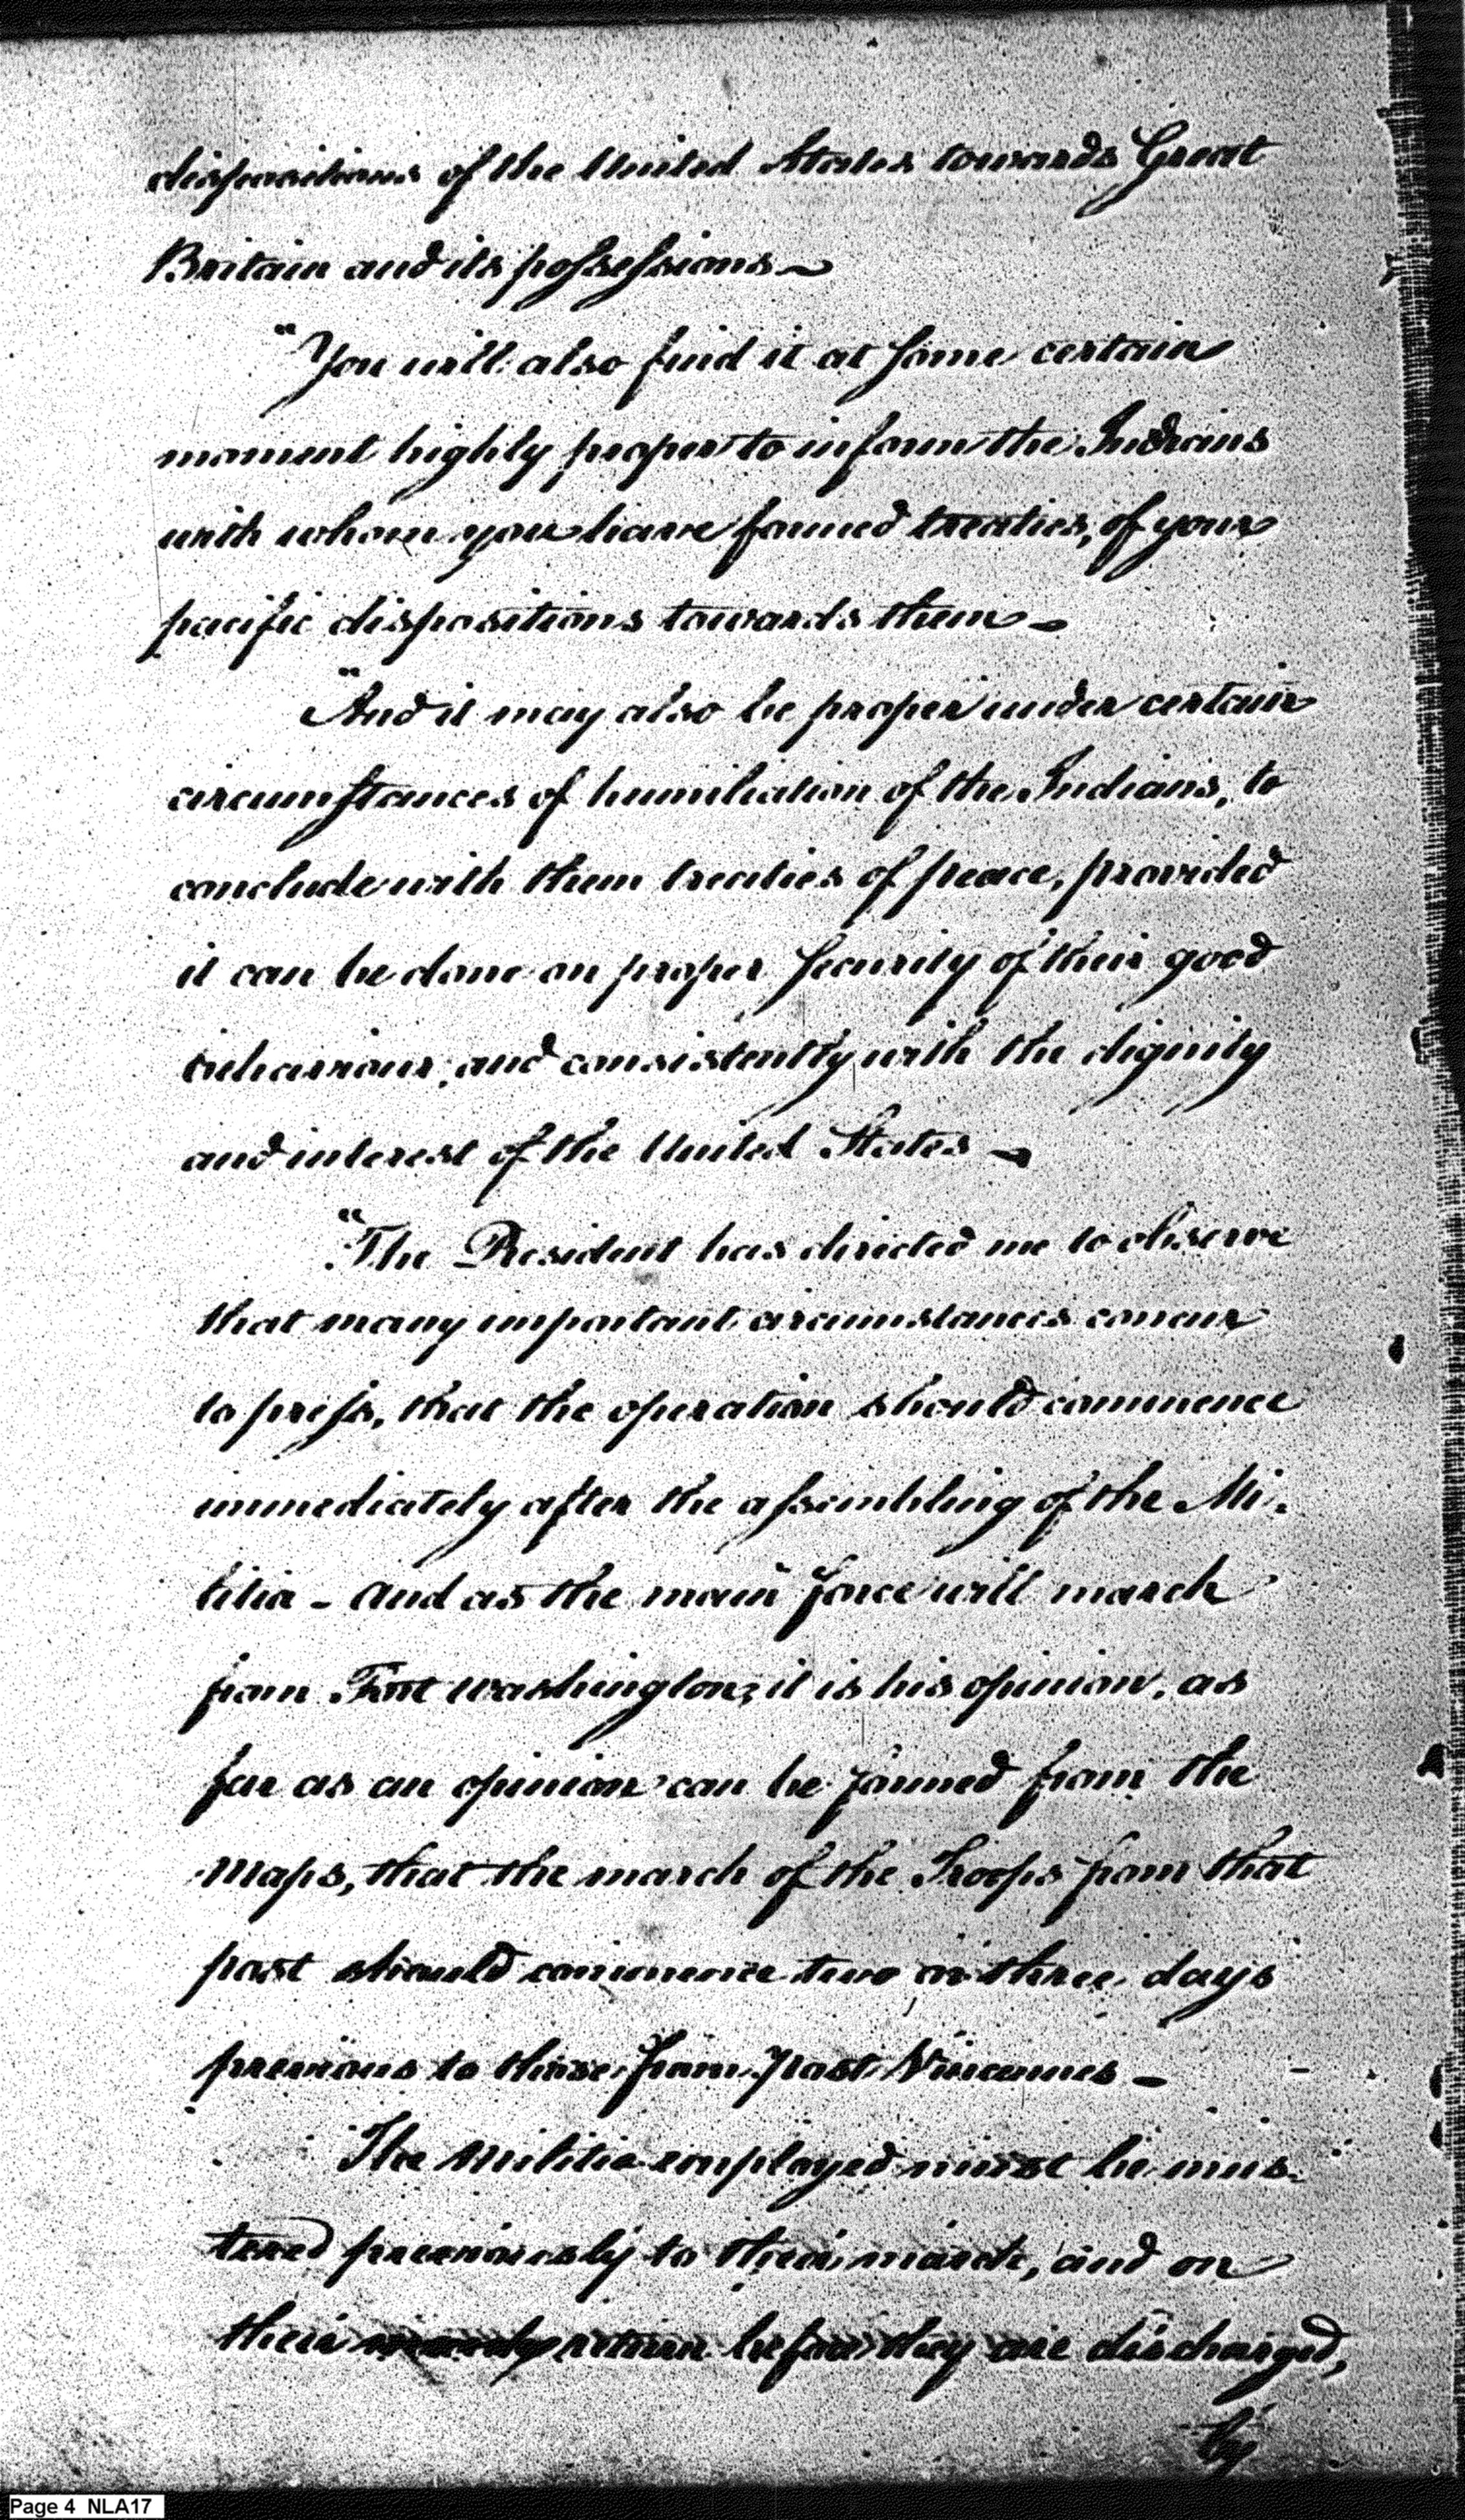 dispositions of the United States towards Great
Britain and its possessions —
"You will also find it at some certain
moment highly proper to inform the Indians
with whom you have formed treaties, of your
pacific dispositions towards them —
"And it may also be proper under certain
circumstances of humiliation of the Indians, to
conclude with them treaties of peace, provided
it can be done on proper security of their good
behaviour, and consistently with the dignity
and interest of the United States —
"The President has directed me to observe
that many important circumstances concur
to press, that the operation should commence
immediately after the assembling of the Mi-
litia - and as the main force will march
from Fort washington; it is his opinion, as
far as an opinion can be formed from the
maps, that the march of the Troops from that
post should commence two or three days
previous to those from Post Vincennes —
The militia employed must be mus-
tered previously to their march, and on
their return before they are discharged,
by
Page 4 NLA17